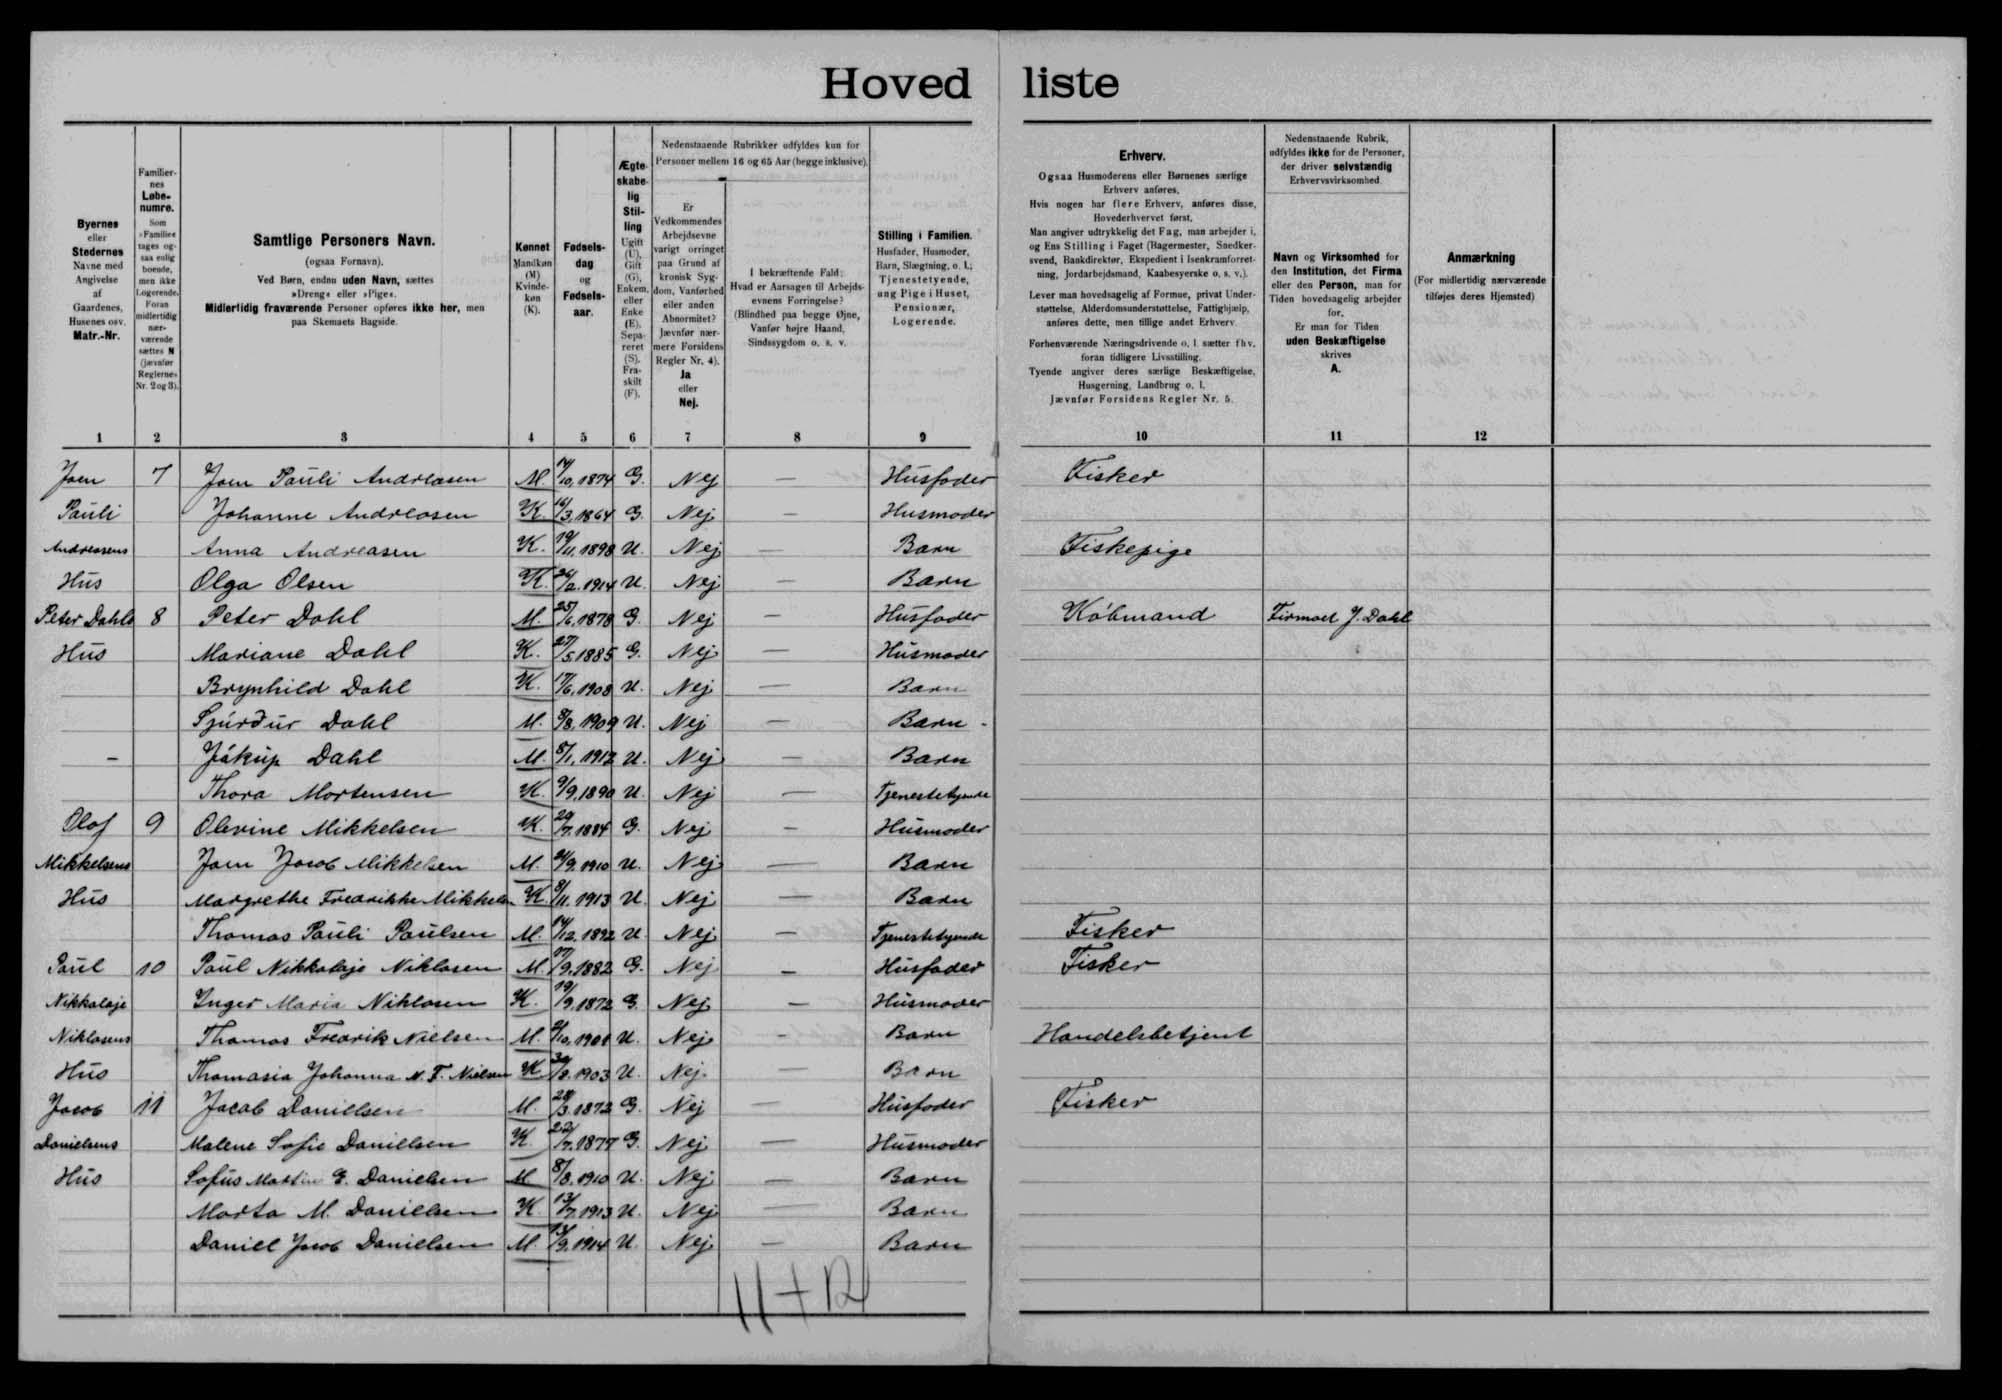 Hovedliste
Byernes eller Stedernes Navne med Angivelse af Gaardenes, Husenes osv. Matr.-Nr.
Familiernes Løbenumre. Som »Familie« tages ogsaa enlig boende, men ikke Logerende. Foran midlertidig nærværende sættes N (jævnfør Reglernes Nr. 2 og 3).
Samtlige Personers Navn. (ogsaa Fornavn). Ved Børn, endnu uden Navn, sættes »Dreng« eller »Pige«. Midlertidig fraværende Personer opføres ikke her, men paa Skemaets Bagside.
Kønnet Mandkøn (M) Kvindekøn (K).
Fødselsdag og Fødselsaar.
Ægteskabelig Stilling Ugift (U), Gift (G), Enkem. eller Enke (E), Separeret (S), Fraskilt (F).
Nedenstaaende Rubrikker udfyldes kun for Personer mellem 16 og 65 Aar (begge inklusive).
Er Vedkommendes Arbejdsevne varigt forringet paa Grund af kronisk Sygdom, Vanførhed eller anden Abnormitet? Jævnfør nærmere Forsidens Regler Nr. 4). Ja eller Nej.
I bekræftende Fald: Hvad er Aarsagen til Arbejdsevnens Forringelse? (Blindhed paa begge Øjne, Vanfør højre Haand, Sindssygdom o. s. v.
Stilling i Familien. Husfader, Husmoder, Barn, Slægtning, o. l.; Tjenestetyende, ung Pige i Huset, Pensionær, Logerende.
Erhverv.
Ogsaa Husmoderens eller Børnenes særlige Erhverv anføres.
Hvis nogen har flere Erhverv, anføres disse, Hovederhvervet først.
Man angiver udtrykkelig det Fag, man arbejder i, og Ens Stilling i Faget (Bagermester, Snedkersvend, Bankdirektør, Ekspedient i Isenkramforretning, Jordarbejdsmand, Kaabesyerske o. s. v.).
Lever man hovedsagelig af Formue, privat Understøttelse, Alderdomsunderstøttelse, Fattighjælp, anføres dette, men tillige andet Erhverv.
Forhenværende Næringsdrivende o. l. sætter fhv. foran tidligere Livsstilling.
Tyende angiver deres særlige Beskæftigelse, Husgerning, Landbrug o. l.
Jævnfør Forsidens Regler Nr. 5.
Nedenstaaende Rubrik, udfyldes ikke for de Personer, der driver selvstændig Erhvervsvirksomhed.
Navn og Virksomhed for den Institution, det Firma eller den Person, man for Tiden hovedsagelig arbejder for.
Er man for Tiden uden Beskæftigelse skrives A.
Anmærkning (For midlertidig nærværende tilføjes deres Hjemsted)
1 2 3 4 5 6 7 8 9 10 11 12
Joen 7 Joen Pauli Andreasen M. 14/10. 1874 G. Nej — Husfader Fisker
Pauli Johanne Andreasen K. 16/3. 1864 G. Nej — Husmoder
Andreasens Anna Andreasen K. 19/11. 1898 U. Nej — Barn Fiskepige
Hus Olga Olsen K. 26/2. 1914 U. Nej — Barn
Peter Dahls 8 Peter Dahl M. 25/6. 1878 G. Nej — Husfader Købmand Firmaet J. Dahl
Hus Mariane Dahl K. 27/5. 1885 G. Nej — Husmoder
Brynhild Dahl K. 17/6. 1908 U. Nej — Barn
Sjúrður Dahl M. 8/8. 1909 U. Nej — Barn
– Jákup Dahl M. 8/1. 1912 U. Nej — Barn
Thora Mortensen K. 9/9. 1890 U. Nej — Tjenestetyende
Olaf 9 Olevine Mikkelsen K. 29/7. 1884 G. Nej — Husmoder
Mikkelsens Joen Jacob Mikkelsen M. 2/9. 1910 U. Nej — Barn
Hus Margrethe Fredrikke Mikkelsen K. 8/11. 1913 U. Nej — Barn
Thomas Pauli Paulsen M. 14/12. 1892 U. Nej — Tjenestetyende Fisker
Paul 10 Paul Nikkolaje Niklasen M. 17/9. 1882 G. Nej — Husfader Fisker
Nikkolaje Inger Maria Niklasen K. 19/9. 1872 G. Nej — Husmoder
Niklasens Thomas Fredrik Nielsen M. /10. 1901 U. Nej — Barn Handelsbetjent
Hus Thomasia Johanna N. F. Nielsen K. 30/8. 1903 U. Nej — Barn
Jacob 11 Jacob Danielsen M. 28/3. 1872 G. Nej — Husfader Fisker
Danielsens Malene Sofie Danielsen K. 22/7. 1877 G. Nej — Husmoder
Hus Sofus Martin E. Danielsen M 8/8. 1910 U. Nej — Barn
Marta M. Danielsen K. 13/7. 1913 U. Nej — Barn
Daniel Jacob Danielsen M. 13/9. 1914 U. Nej — Barn
11 + 12